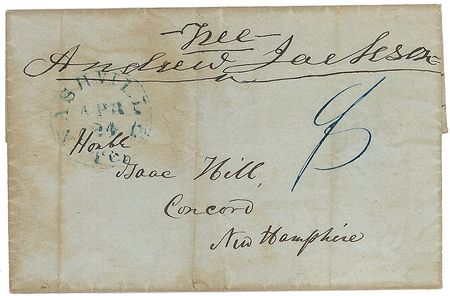 Free
Andrew Jackson
NASHVILLE
APR
24
Ten
Honble
Isaac Hill,
Concord
New Hampshire